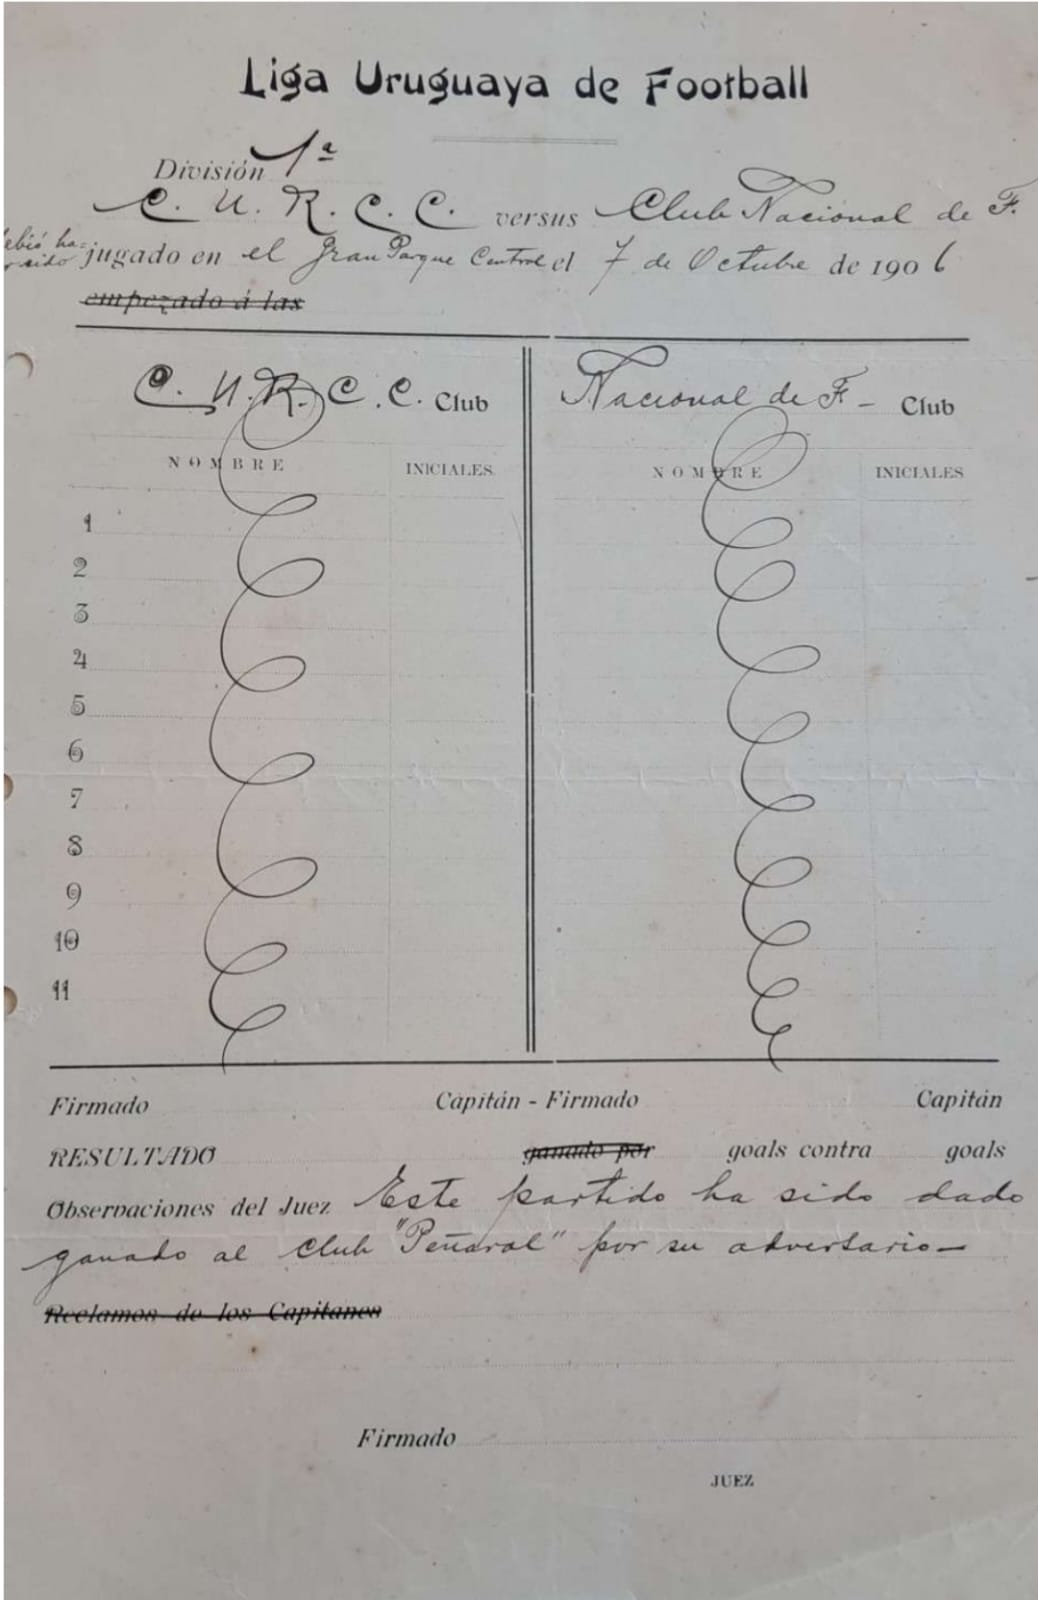 Liga Uruguaya de Football
División 1ª
C. U. R. C. C. versus Club Nacional de F.
debió haber sido jugado en el Gran Parque Central el 7 de Octubre de 1906
empezado á las
C. U. R. C. C. Club
Nacional de F. – Club
NOMBRE INICIALES
NOMBRE INICIALES
1
2
3
4
5
6
7
8
9
10
11
Firmado Capitán - Firmado Capitán
RESULTADO ganado por goals contra goals
Observaciones del Juez Este partido ha sido dado
ganado al club "Peñaral" por su adversario—
Reclamos de los Capitanes
Firmado
JUEZ